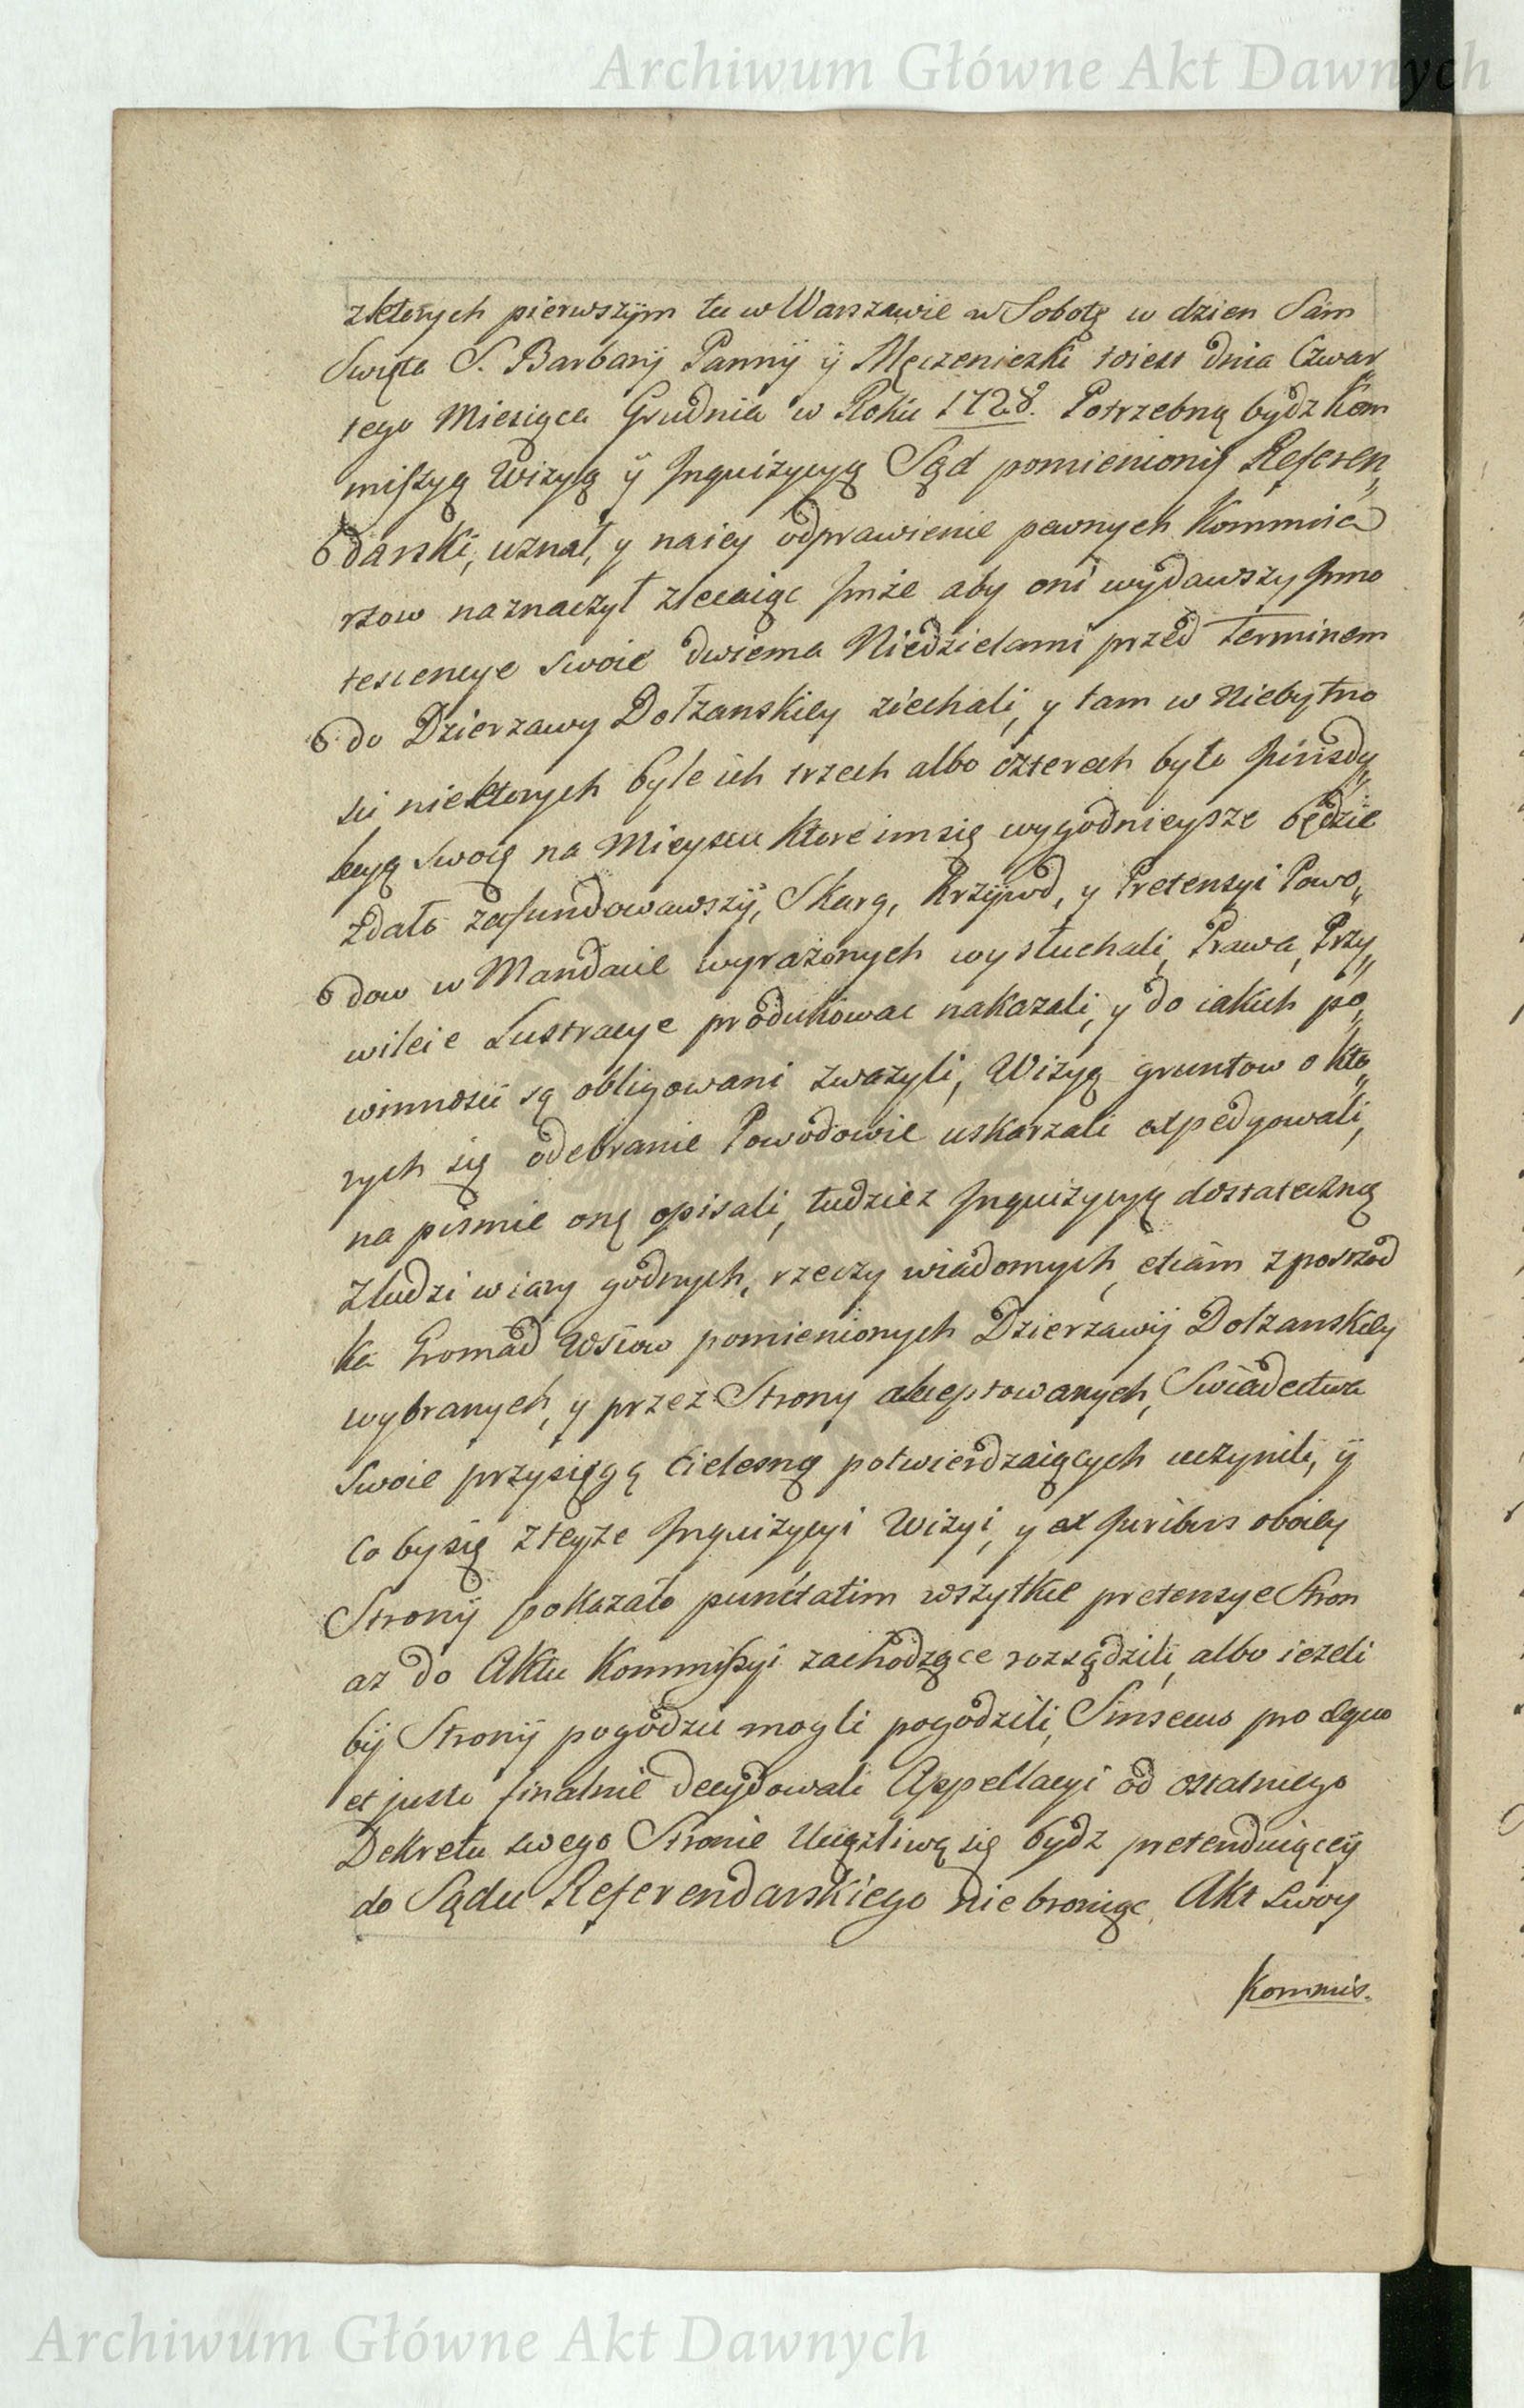 Archiwum Główne Akt Dawnych
z których pierwszÿm tu w Warszawie w Sobotę w dzien Sam
Swięta S. Barbarÿ Pannÿ ÿ Męczeniczki toiest dnia Czwar„
tego Miesiąca Grudnia w Roku 1728. Potrzebną bydz Kom
mißyą Wizyą ÿ Inquizycyą Sąd pomienionÿ Referen„
darski, uznał, y na iey odprawienie pewnych Kommisa
rzow naznaczył zlecaiąc Imże aby oni wydawszy Inno
tescencye swoie dwiema Niedzielami przed Terminem
do Dzierzawy Dołzanskiey ziechali, y tam w Niebytno
sci niektorych byle ich trzech albo czterech było Jurisdy„
kcyą swoię na Mieyscu ktore im się wygodnieysze będzie
zdało zafundowawszÿ, Skarg, Krzÿwd, y Pretensyi Powo„
dow w Mandacie wyrażonych wysłuchali, Prawa, Przy„
wileie Lustracye produkowac nakazali, y do iakich po„
winnosci są obligowani zwazyli, Wizyą gruntow o kto„
rych się odebranie Powodowie uskarzali expedyowali,
na pismie onę opisali, tudziez Inquizycyą dostateczną
z ludzi wiary godnych, rzeczy wiadomych, etiam z posrzod
ka Gromad Wsiow pomienionych Dzierzawÿ Dołzanskiey
wybranych, y przez Strony akceptowanych, Swiadectwa
swoie przysięgą cielesną potwierdzaiących uczynili, ÿ
co by się z teyze Inquizycyi Wizyi, y ex Juribus oboiey
Stronÿ pokazało punctatim wszytkie pretensye Stron
az do Aktu Kommißyi zachodzące rozsądzili, albo iezeli
bÿ Stronÿ pogodzic mogli pogodzili, Sinsecus pro aequo
et justo finalnie decydowali Appellacyi od ostatniego
Dekretu swego Stronie Uciązliwą się bydz pretenduiącey
do Sądu Referendarskiego nie broniąc, Akt swoy
Kommis.
Archiwum Główne Akt Dawnych